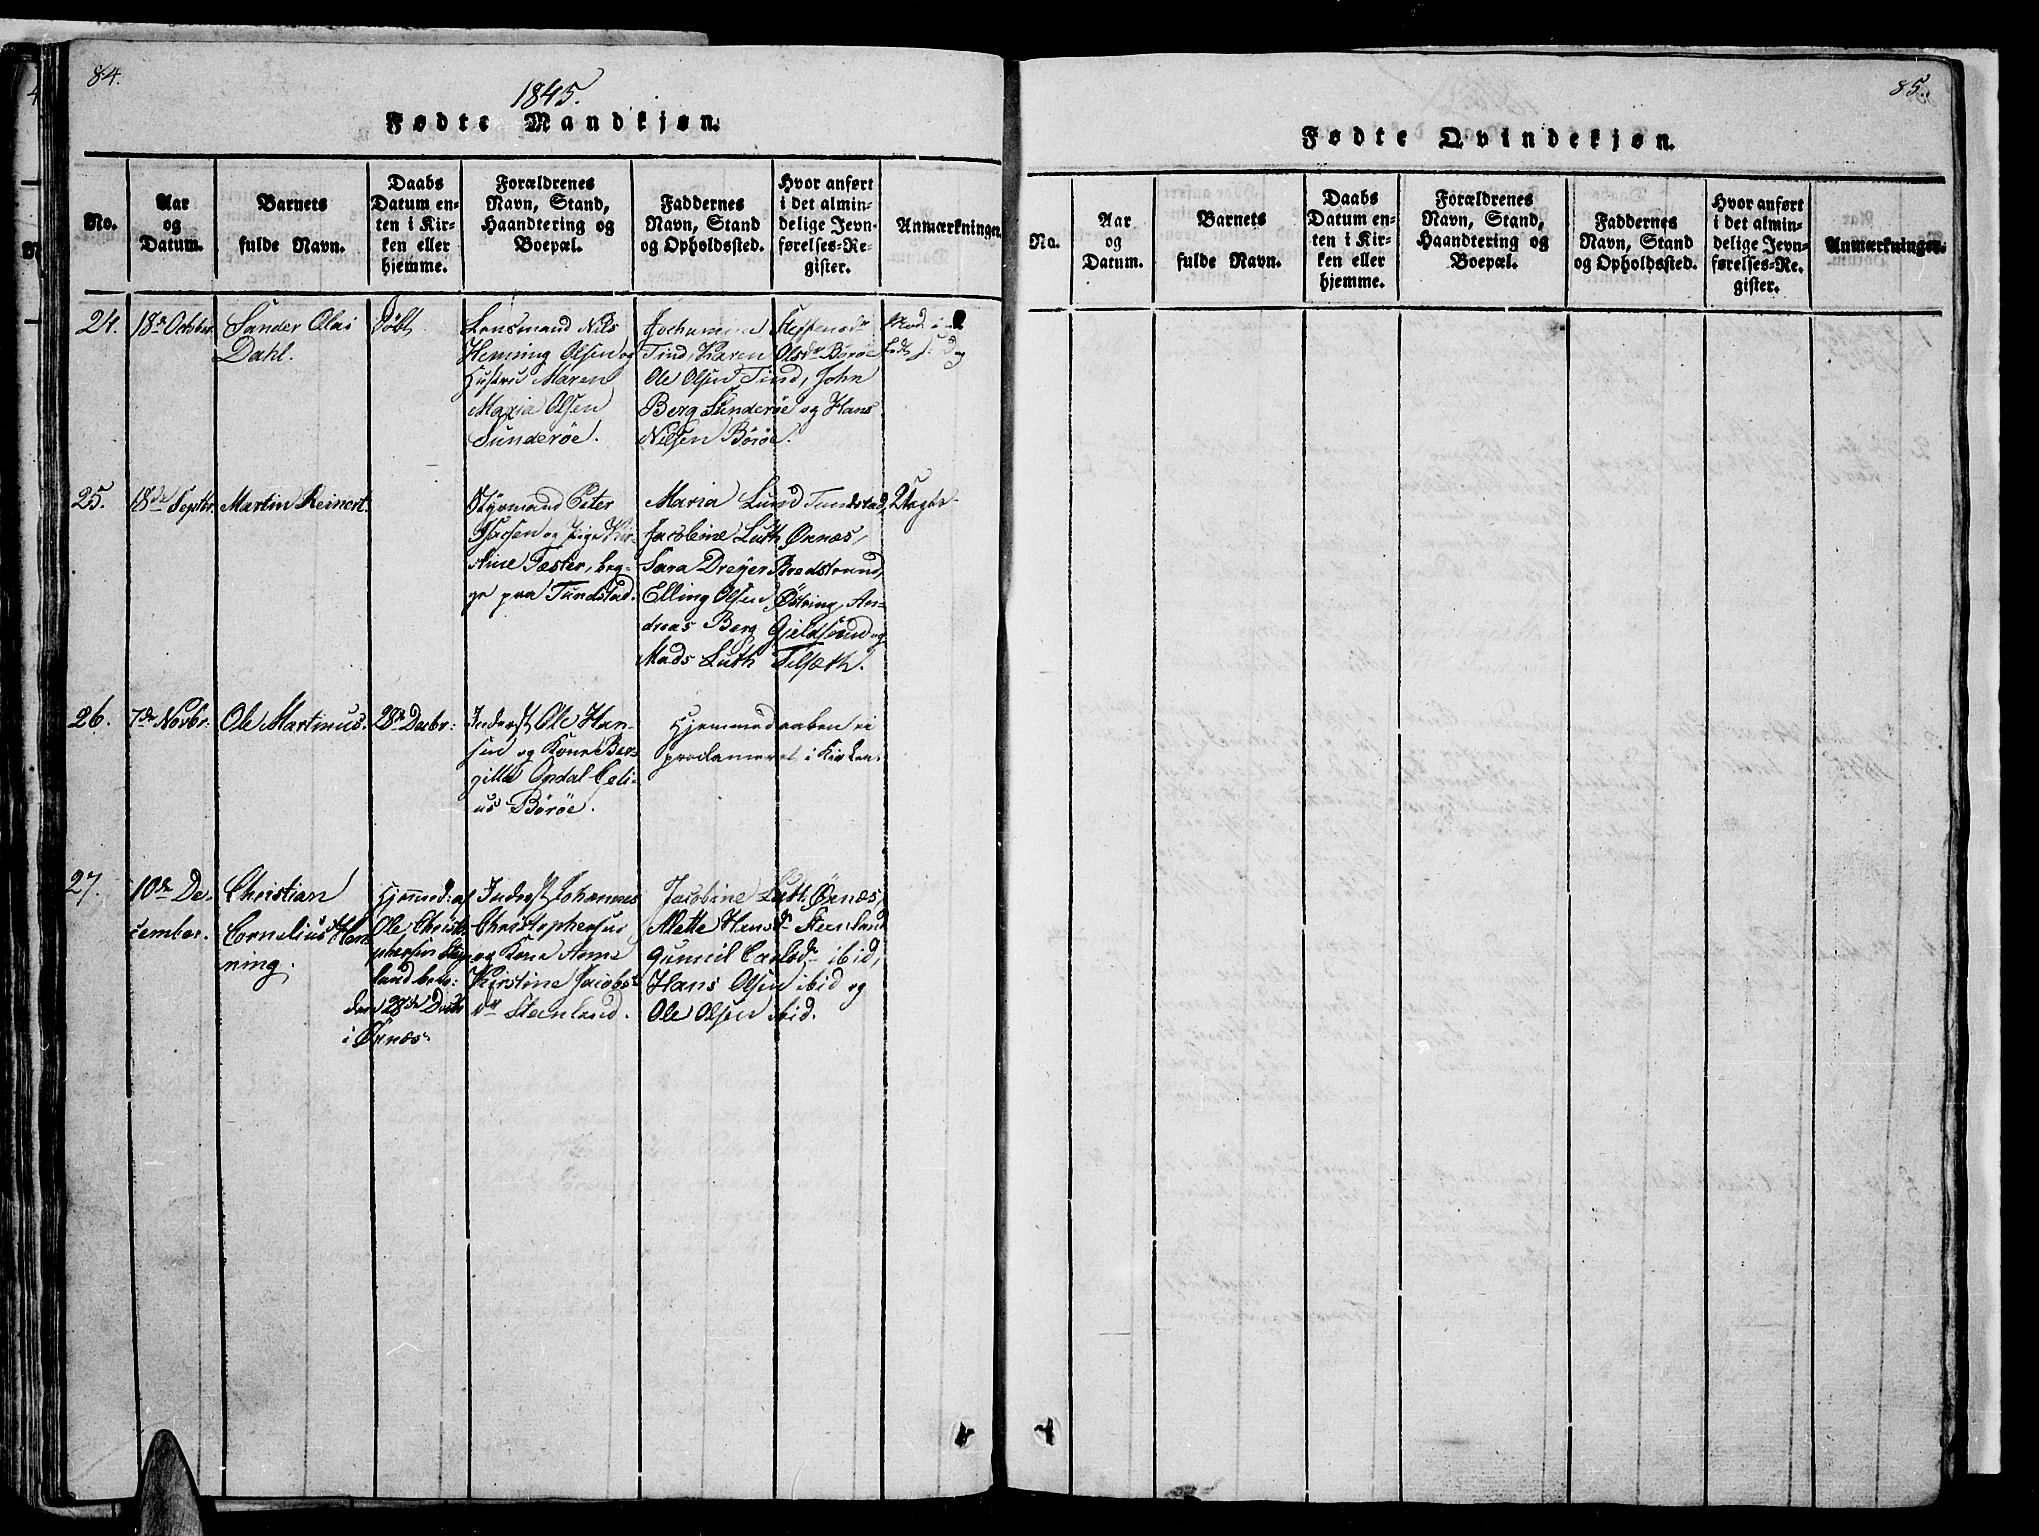 84.
1845.
Fødte Mandkjøn.
No.
Aar
og
Datum.
Barnets
fulde Navn.
Daabs
Datum en-
ten i Kir-
ken eller
hjemme.
Forældrenes
Navn, Stand,
Haandtering og
Boepæl.
Faddernes
Navn, Stand
og Opholdssted.
Hvor anført
i det almin-
delige Jevn-
førelses-Re-
gister.
Anmærkninger.
24.
18de Octobr.
Sander Olai
Dahl.
Døbt
Lensmand Nils
Heming Olsen og
Hustru Maren
Maria Olsen
Sunderøe.
Jochumine Steffensdr
Tind, Karen Olsdr Børøe
Ole Olsen Tind, John
Berg Sunderøe og Hans
Nilsen Børøe.
25.
18de Septbr.
Martin Reinert.
Styrmand Peter
Isacsen og Pige Kir-
stine Tæster, beg-
ge paa Tundstad.
Maria Lund Tundstad,
Jacobine Luth Ørnæs,
Sara Dreyer Bredstrand,
Elling Olsen Østring, An-
dreas Berg Gjeldsund og
Mads Luth Tilsæth.
Uægte.
26.
7de Novbr:
Ole Martinus.
28de Decbr:
Inderst Ole Han-
sen og Kone Ber-
gitte Opdal Celi-
us Børøe.
Hjemmedaaben ei
proclameret i Kirken.
27.
10de De-
cember.
Christian
Cornelius Hen-
ning.
Hjemmed: af
Ole Christo-
phersen Steen-
land
den 28de Decbr
i Ørnæs.
Inderst Johannes
Christophersen
og Kone Anne
Kirstine Jacobs-
dr Steenland.
Jacobine Luth Ørnæs,
Alette Hansdr Steenland
Gunnil Carlsdr ibid,
Hans Olsen ibid og
Ole Olsen ibid.
85.
Fødte Qvindekjøn.
No.
Aar
og
Datum.
Barnets
fulde Navn.
Daabs
Datum en-
ten i Kir-
ken eller
hjemme.
Forældrenes
Navn, Stand,
Haandtering og
Boepæl.
Faddernes
Navn, Stand
og Opholdssted.
Hvor anført
i det almin-
delige Jevn-
førelses-Re-
gister.
Anmærkninger.